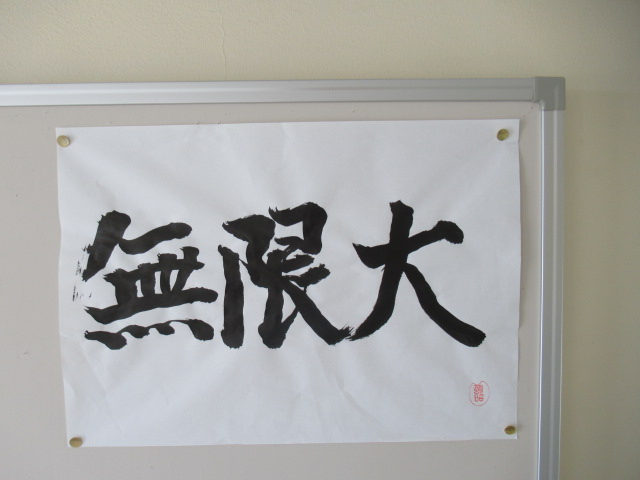 無限大